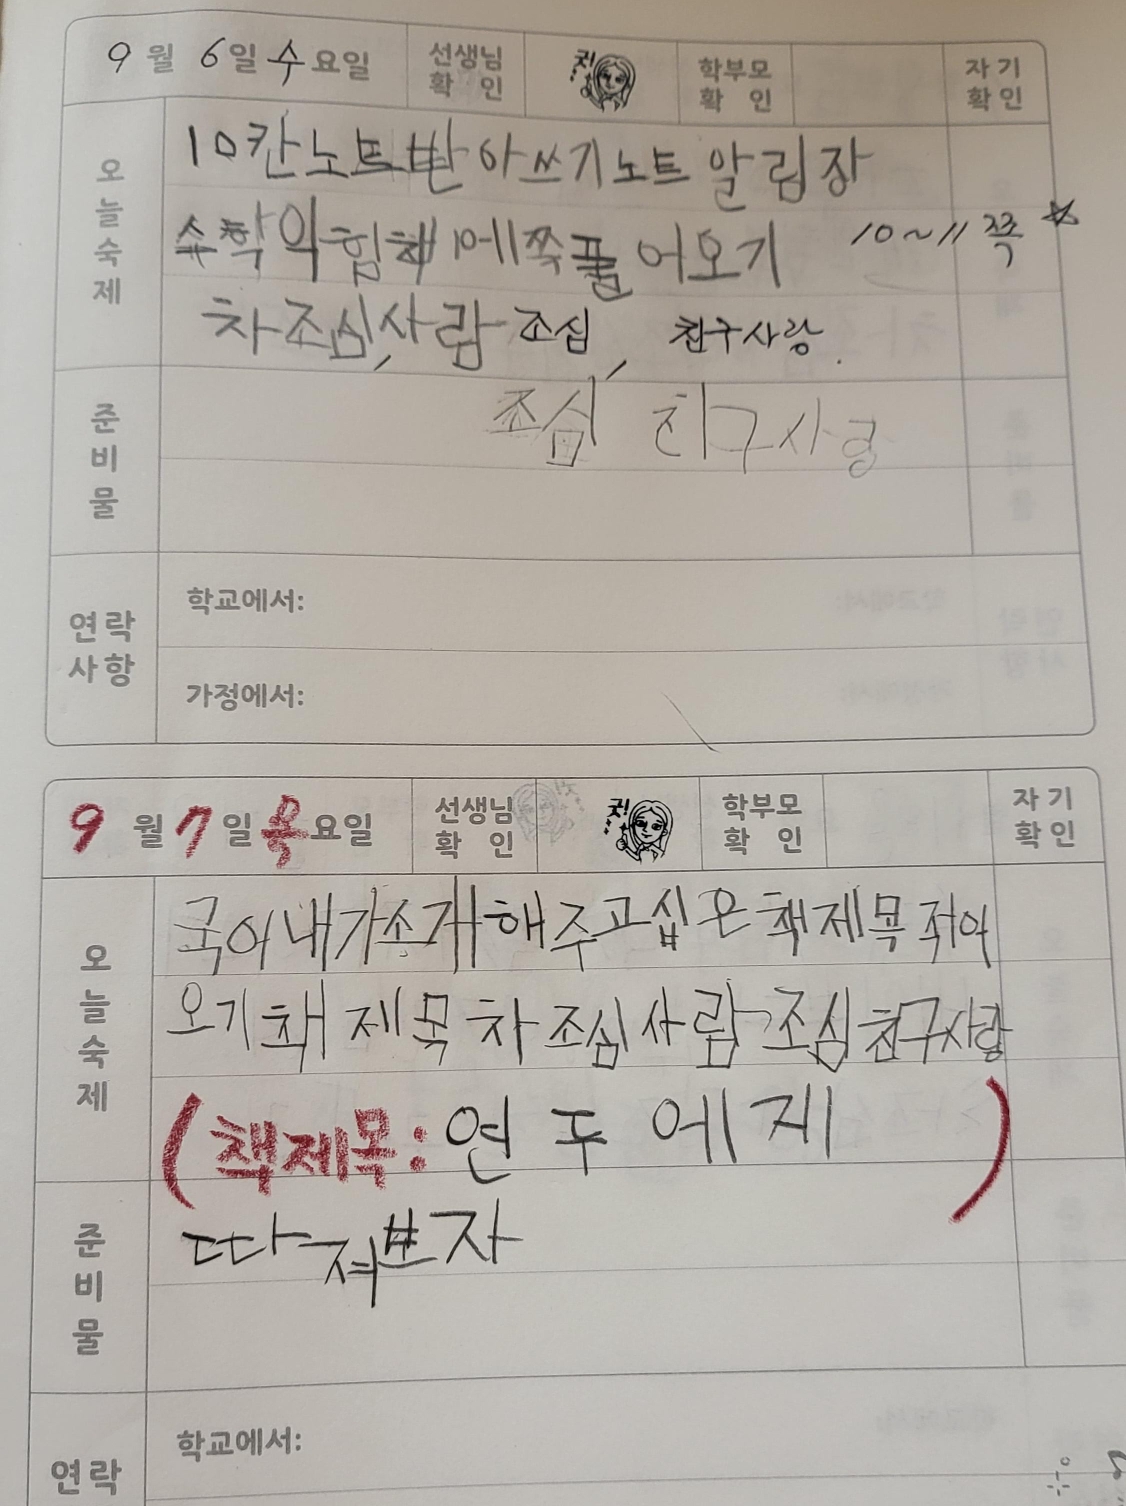 9월 6일 수요일 선생님 확인 굿! 학부모 확인 자기 확인
오늘숙제
10칸노트반아쓰기노트 알림장
수학익힘책10에11쪽풀어오기 10~11쪽
차조심,사람조심, 친구사랑.
준비물
조심 친구사랑
연락사항
학교에서:
가정에서:
9월 7일 목요일 선생님 확인 굿! 학부모 확인 자기 확인
오늘숙제
국어내가소개해주고십은책제목적어
오기책제목차조심사람조심친구사랑
(책제목: 연두에지)
준비물
연락
학교에서: